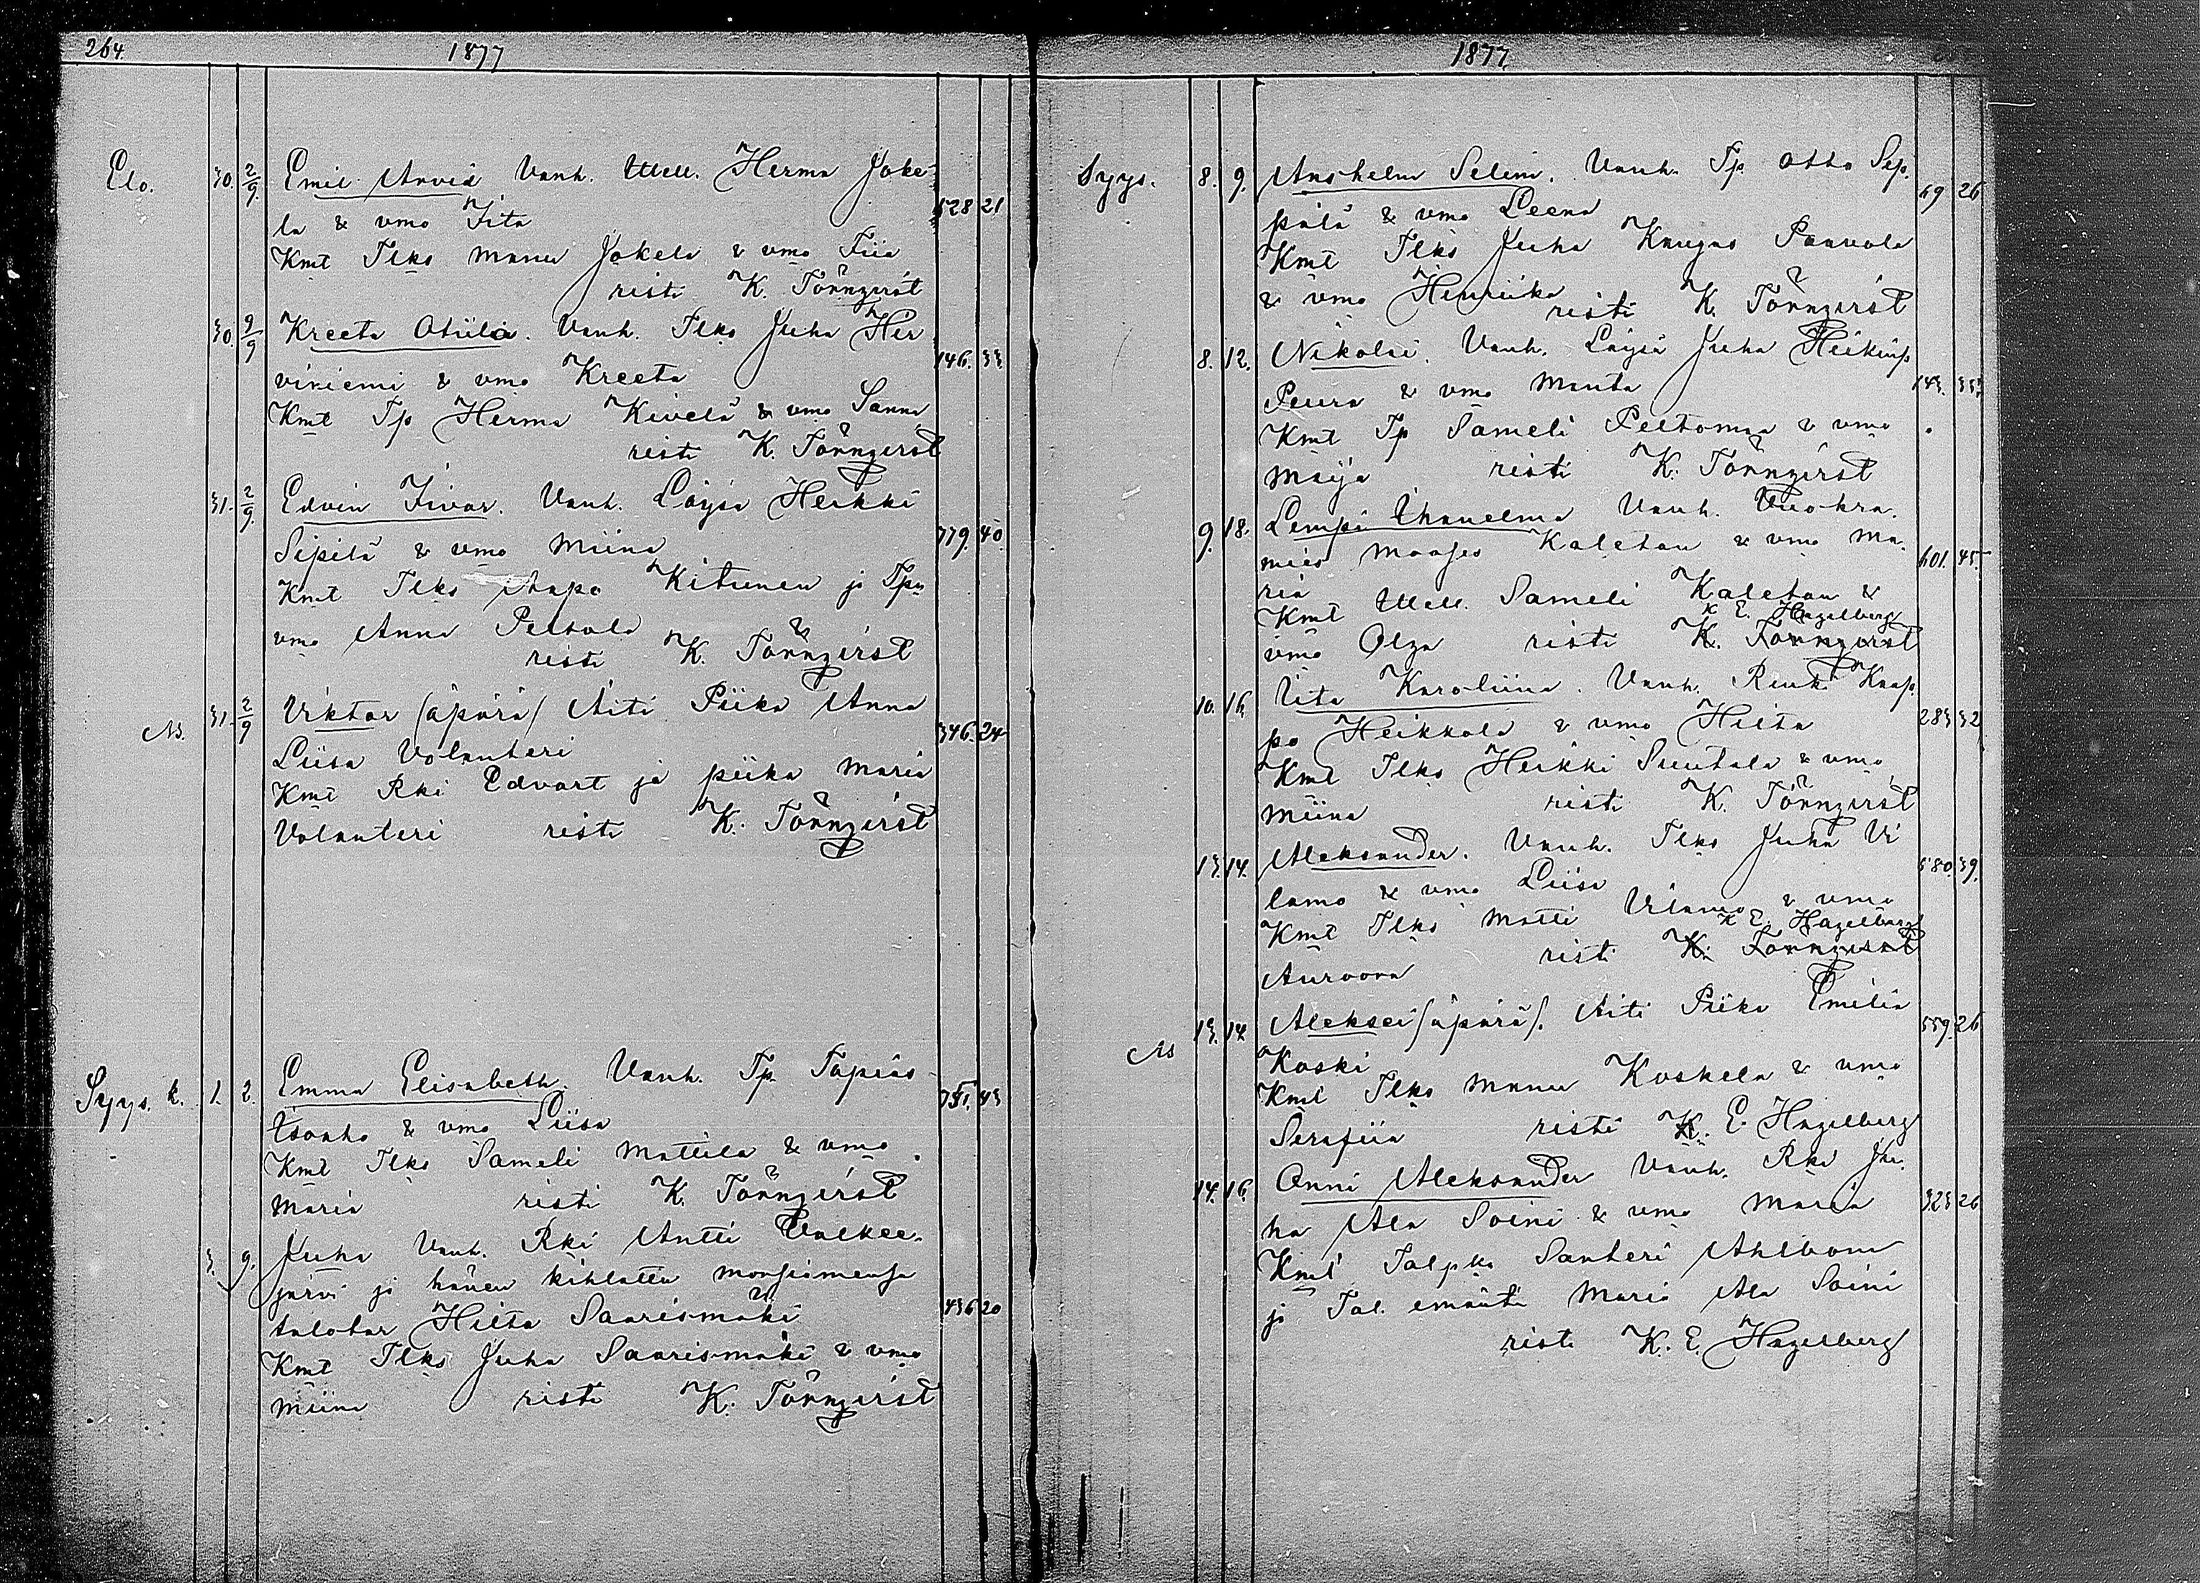 264. 1877
Elo. 30. 2/9. Emil Arvid Vanh. Ulell. Herma Joke-
la & vmo Fita 528 21
Kmt Tlks Manu Jokela & vmo Fiia
risti K. Törnqvist
30. 9/9 Kreeta Otiilia. Vanh. Tlks Juha Hir
viniemi & vmo Kreeta 146. 33
Kmt Tp Herma Kivelä & vmo Sanna
risti K. Törnqvist
31. 2/9. Edvin Iivar. Vanh. Löysä Heikki
Sipilä & vmo Miina 779. 40.
Kmt Tlks Aapo Kitunen ja Tpn
vmo Anna Peltola
risti K. Törnqvist
Ns. 31. 2/9 Viktor (äpärä) Äiti Piika Anna
Liisa Volanteri 346. 24
Kmt Rki Edvart ja piika Maria
Volanteri risti K. Törnqvist
Syys. k. 1. 2. Emma Elisabeth. Vanh. Tp. Topias
Isoaho & vmo Liisa 751. 43
Kmt Tlks Sameli Mattila & vmo
Maria risti K. Törnqvist
3. 9. Juha Vanh. Rki Antti Valkee-
järvi ja hänen kihlattu morsiamensa
talotar Hilta Saarismäki 436 20
Kmt Tlks Juha Saarismäki & vmo
Miina risti K. Törnqvist
1877.
Syys. 8. 9. Anshelm Selim. Vanh. Tp. Otto Sep-
pälä & vmo Leena 69 26
Kmt Tlks Juha Kangas Paavola
& vmo Henriika risti K. Törnqvist
8. 12. Nikolai. Vanh. Löysä Juha Heikinp.
Peura & vmo Manta 143. 35.
Kmt Tp Sameli Peltomaa & vmo
Maija risti K. Törnqvist
9. 18. Lempi Ihanelma Vanh. Vuokra-
mies Mooses Kaleton & vmo Ma-
ria 601. 45.
Kmt Ulell. Sameli Kaleton &
K. E. Hagelberg
vmo Olga risti K. Törnqvist
10. 16. Iita Karoliina. Vanh. Renki Kaap-
po Heikkola & vmo Hilta 283 32
Kmt Tlks Heikki Suutala & vmo
Miina risti K. Törnqvist
13. 14. Aleksander. Vanh. Tlks Juha Vi
lamo & vmo Liisa 580. 39.
Kmt Tlks Matti Vilamo & vmo
K. E. Hagelberg
Auroora risti K. Törnqvist
Ns 13. 14 Aleksei (äpärä). Äiti Piika Emilia
Koski 559. 26
Kmt Tlks Manu Koskela & vmo
Serafiia risti K. E. Hagelberg
14. 16. Onni Aleksander Vanh. Rki Ju-
ha Ala Soini & vmo Maria 323 26
Kmt Talpka Santeri Ahlbom
ja Tal. emäntä Maria Ala Soini
risti K. E. Hagelberg